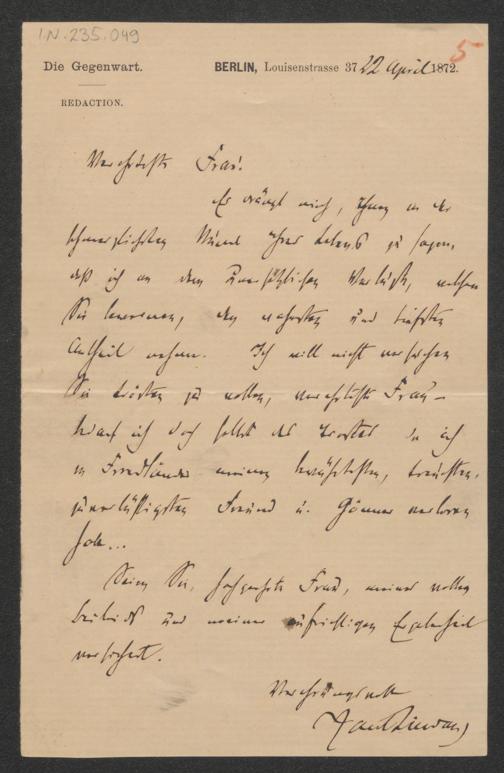 I.N. 235.049
5
Die Gegenwart.
BERLIN, Louisenstrasse 37 22 April 1872.
REDACTION.
Verehrteste Frau!
Es drängt mich, Ihnen in der
schmerzlichsten Stunde Ihres Lebens zu sagen,
daß ich an dem unersetzlichen Verluste, welchen
Sie beweinen, den wahrsten und tiefsten
Antheil nehme. Ich will nicht versuchen
Sie trösten zu wollen, verehrteste Frau –
bedarf ich doch selbst des Trostes da ich
in Friedländer meinen bewährtesten, treusten,
zuverlässigsten Freund u. Gönner verloren
habe...
Seien Sie, hochgeehrte Frau, meines vollen
Beileids und meiner aufrichtigen Ergebenheit
versichert.
Verehrungsvoll
Paul Lindau